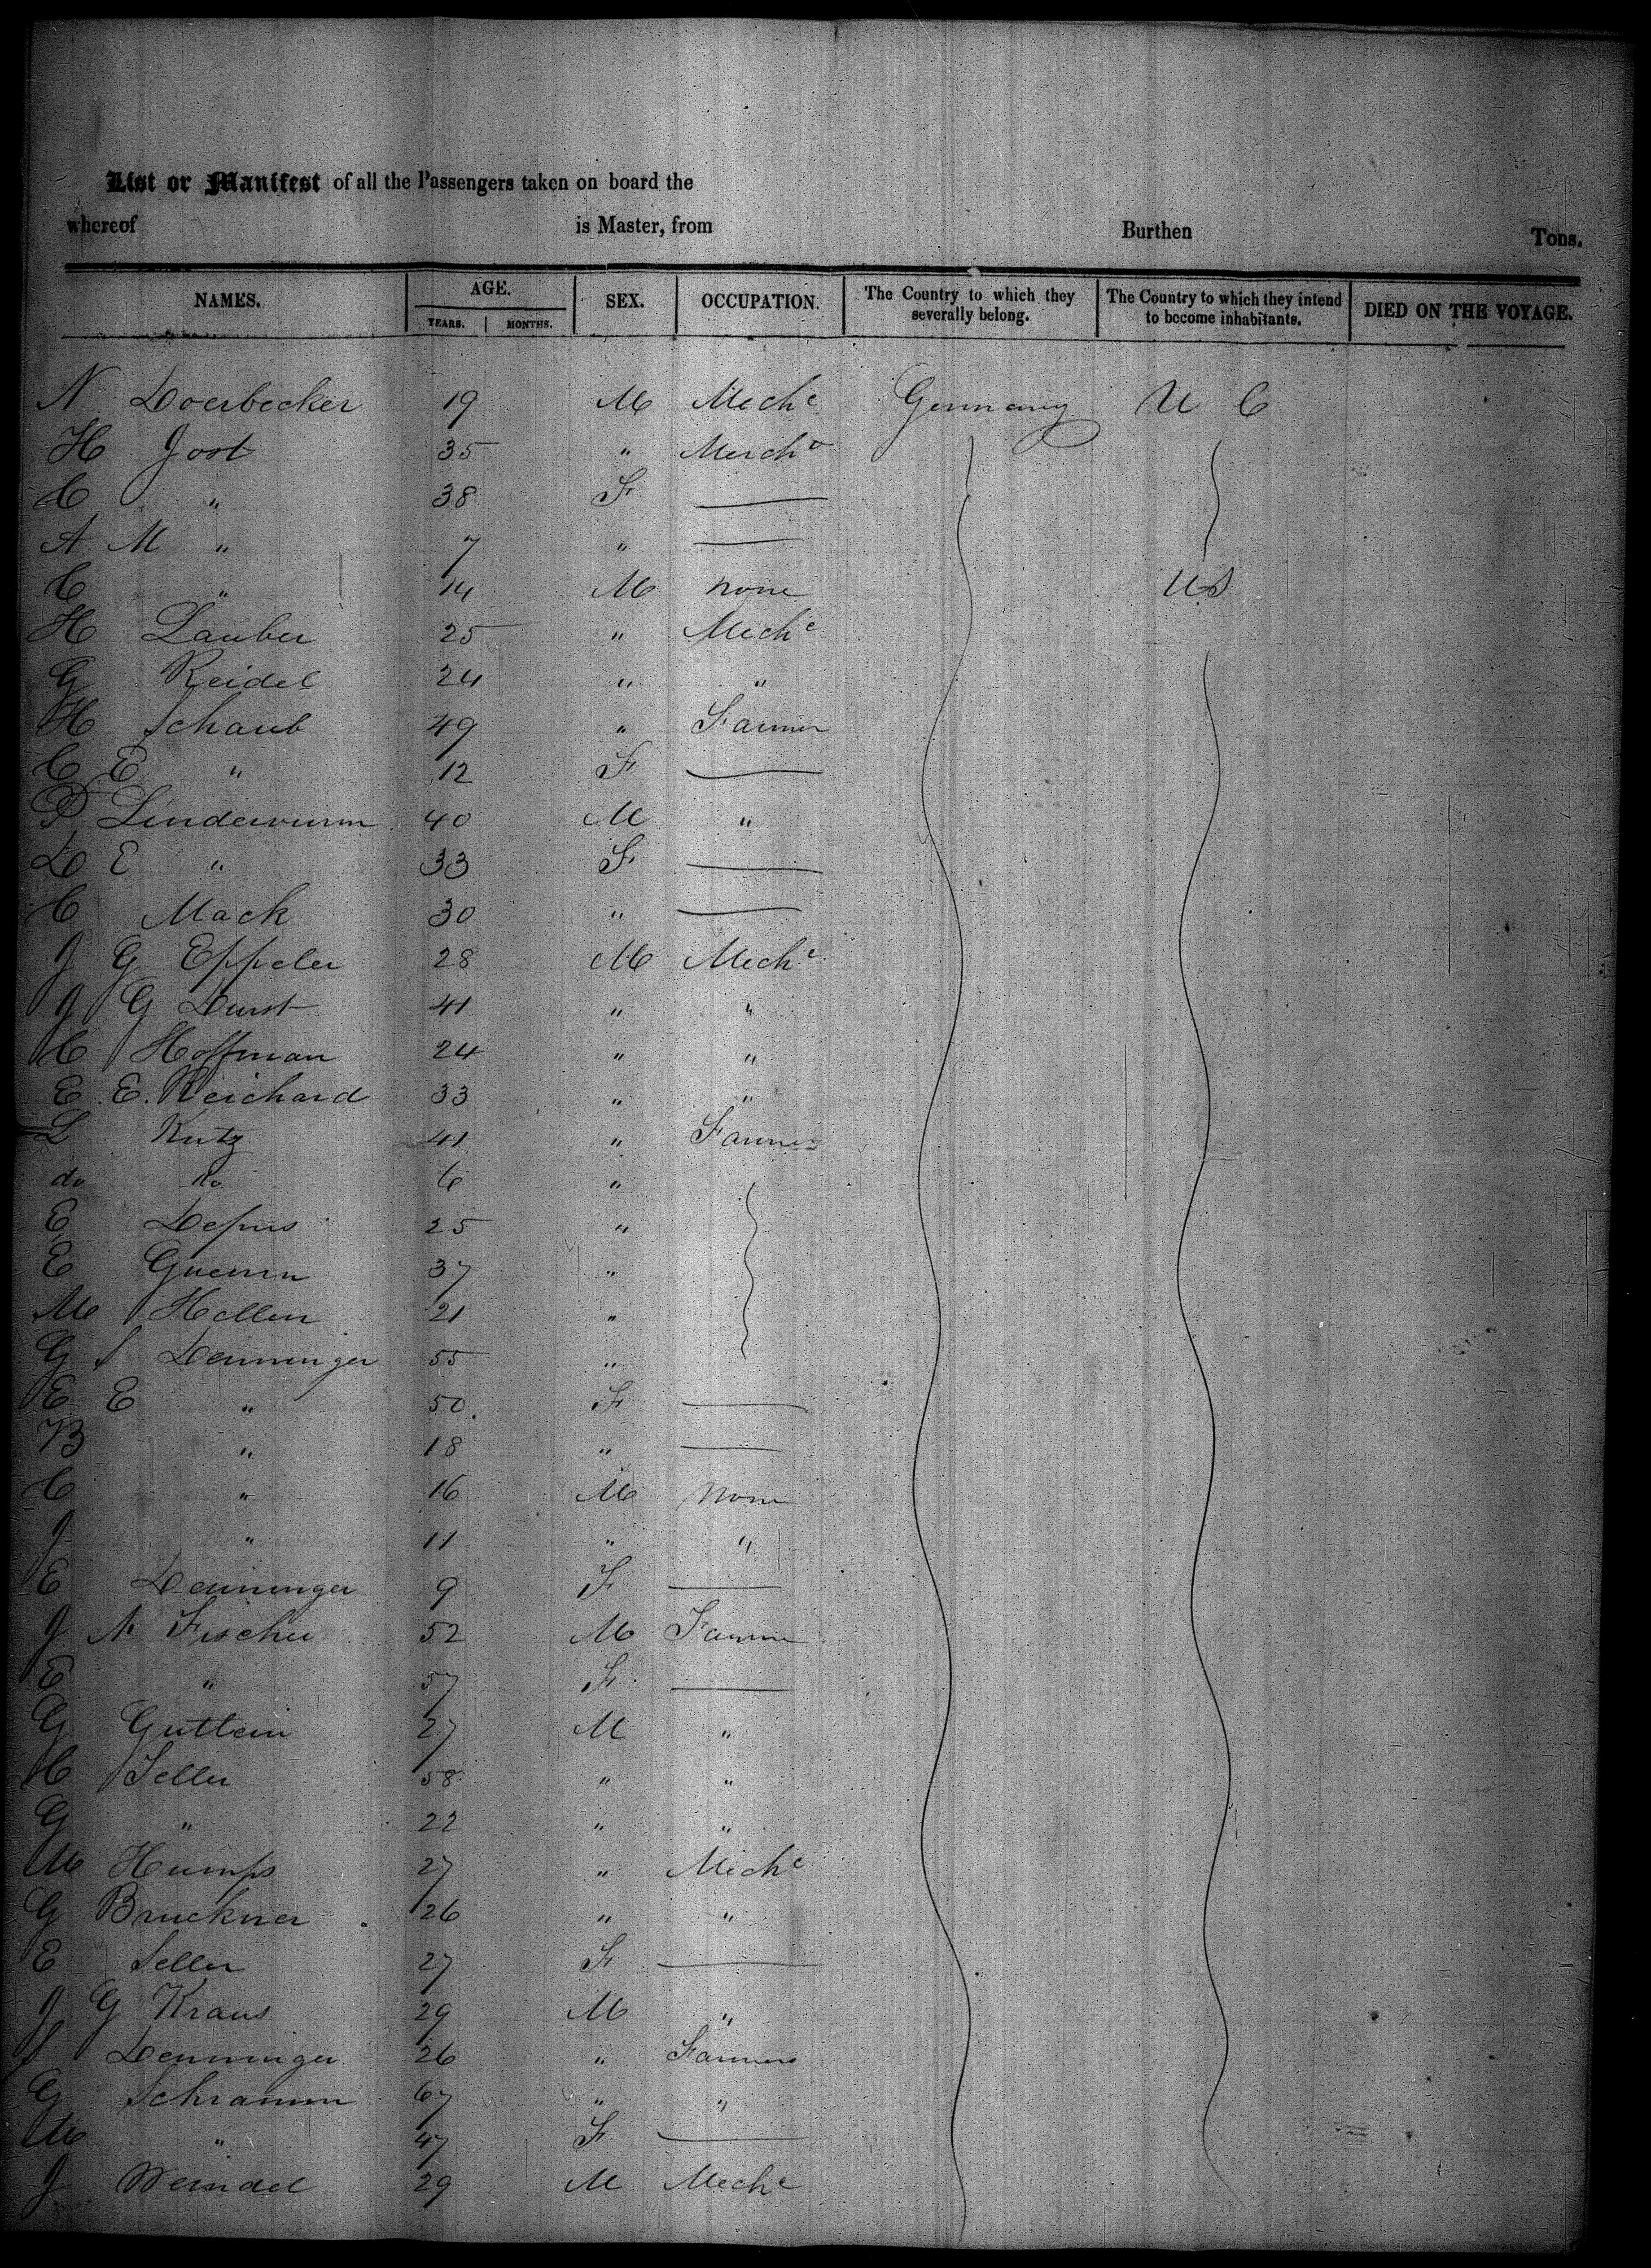 List or Manifest of all the Passengers taken on board the
whereof is Master, from Burthen Tons.
NAMES. AGE. YEARS. MONTHS. SEX. OCCUPATION. The Country to which they severally belong. The Country to which they intend to become inhabitants. DIED ON THE VOYAGE.
N Doerbecker 19 M Mechc Germany U C
H Jost 35 " Merch
C " 38 F —
A M " 7 " —
C " 14 M none US
H Lauber 25 " Mechc
G Reidel 24 " "
H Schaub 49 " Farmer
C E " 12 F —
P Lindewurm 40 M "
D E " 33 F —
C Mack 30 " —
J G Eppeler 28 M Mechc
J G Durst 41 " "
C Hoffman 24 " "
E E. Reichard 33 " "
L Kutz 41 " Farmer
do do 6 "
E 25 "
E 37 "
M Hellen 21 "
G S Denninger 55 "
E E " 50. F —
B " 18 " —
C " 16 M none
J " 11 " "
E Denninger 9 F —
J N Fischer 52 M Farmer
E " 57 F —
G Gutlein 27 M "
C Seller 58 " "
G " 22 " "
M Humps 27 " Mechc
G Bruckner 26 " "
E Seller 27 F —
J G Kraus 29 M "
S Denninger 26 " Farmer
G Schramm 67 " "
M " 47 F —
J Weindel 29 M Mechc